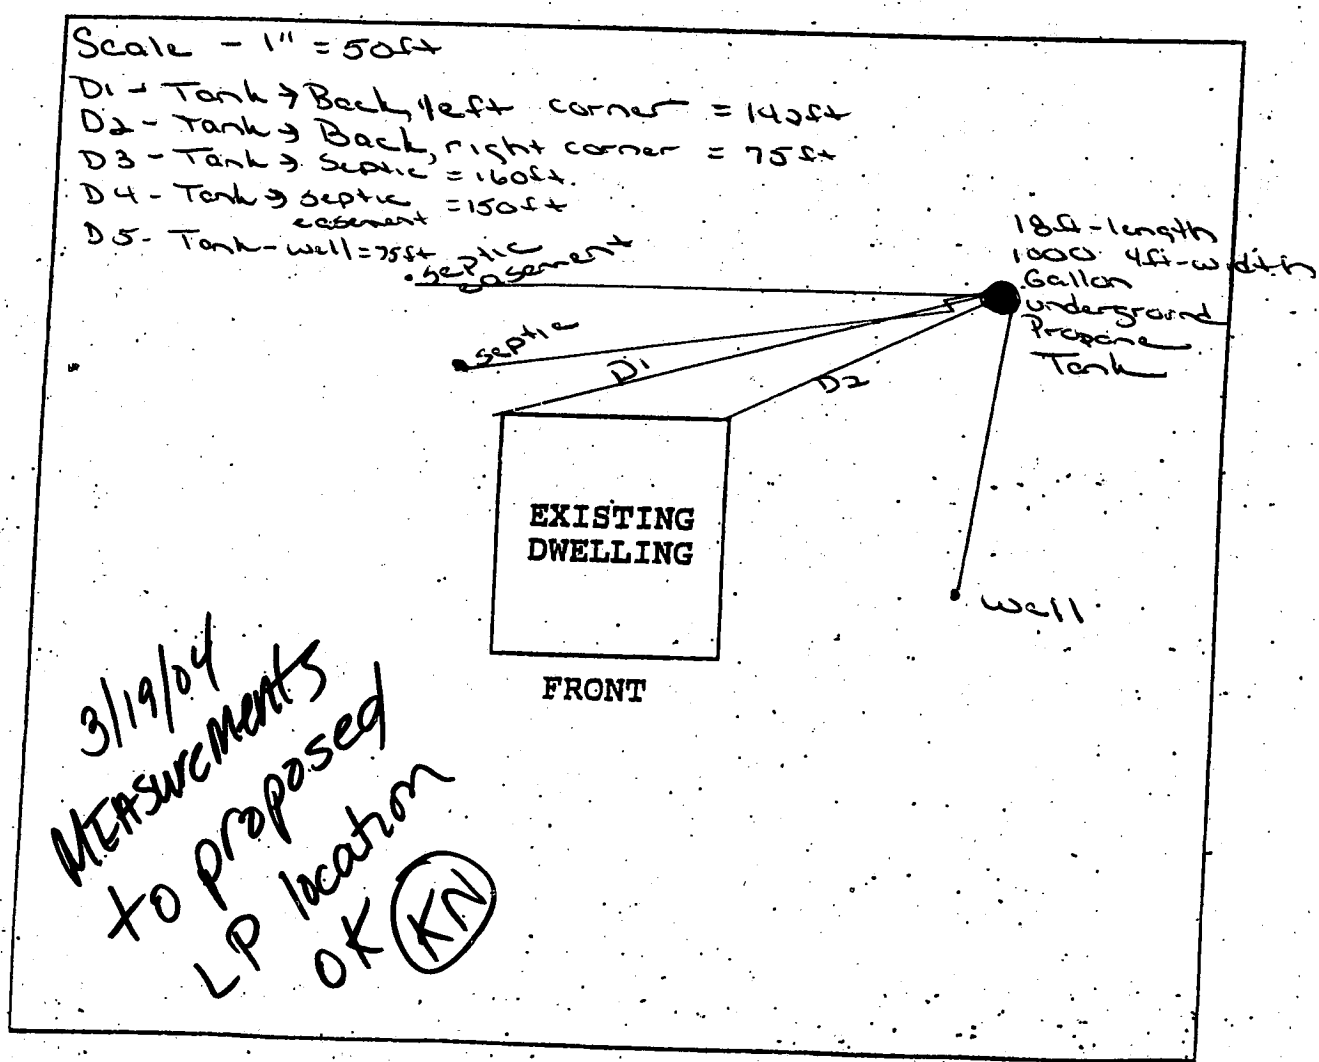 Scale - 1" = 50ft
D1 - Tank → Back, left corner = 142ft
D2 - Tank → Back, right corner = 75ft
D3 - Tank → Septic = 160ft.
D4 - Tank → septic easement = 150ft
D5 - Tank - well = 75ft
septic easement
18ft - length
1000 4ft - width
Gallon
underground
Propane
Tank
septic
D1
D2
EXISTING
DWELLING
well
FRONT
3/19/04
MEASUREMENTS
to proposed
LP location
OK KN